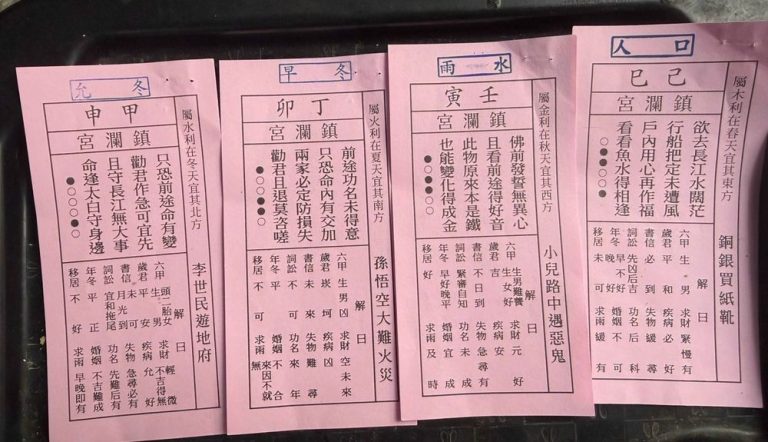 允冬
甲申
鎮瀾宮
屬水利在冬天宜其北方
只恐前途命有變
勸君作急可宜先
且守長江無大事
命逢太白守身邊
李世民遊地府
解曰
六甲 頭二胎女 生男 求財 輕微
歲君 平安 疾病 允好
書信 月光到 失物 急尋必有
詞訟 宜和拖尾 功名 先難後有
年冬 平正 婚姻 不吉難成
移居 不好 求雨 早晚即有
早冬
丁卯
鎮瀾宮
屬火利在夏天宜其南方
前途功名未得意
只恐命內有交加
兩家必定防損失
勸君且退莫咨嗟
孫悟空大難火災
解曰
六甲 生男凶 求財 空未來
歲君 崁坷 疾病 凶
書信 未來 失物 難尋
詞訟 不可 功名 來年
年冬 不可 婚姻 不合
移居 不可 求雨 無
雨水
壬寅
鎮瀾宮
屬金利在秋天宜其西方
佛前發誓無異心
且看前途得好音
此物原來本是鐵
也能變化得成金
小兒路中遇惡鬼
解曰
六甲 生男難養 生女好 求財 元好
歲君 吉 疾病 安
書信 不日到 失物 急尋有
詞訟 緊審自知 功名 未成
年冬 早好晚平 婚姻 宜成
移居 好 求雨 及時
人口
己巳
鎮瀾宮
屬木利在春天宜其東方
欲去長江水闊茫
行船把定未遭風
戶內用心再作福
看看魚水得相逢
銅銀買紙靴
解曰
六甲 生男 求財 緊慢有
歲君 平和 疾病 必好
書信 必到 失物 緩尋
詞訟 先凶后吉 功名 后科
年冬 早不好 晚好 婚姻 不可
移居 未可 求雨 緩有